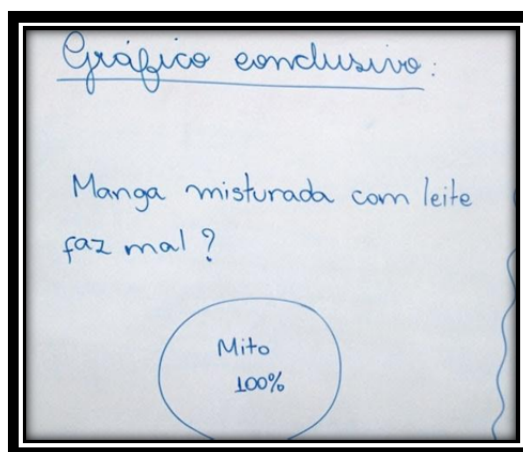 Gráfico conclusivo:
Manga misturada com leite
faz mal?
Mito
100%